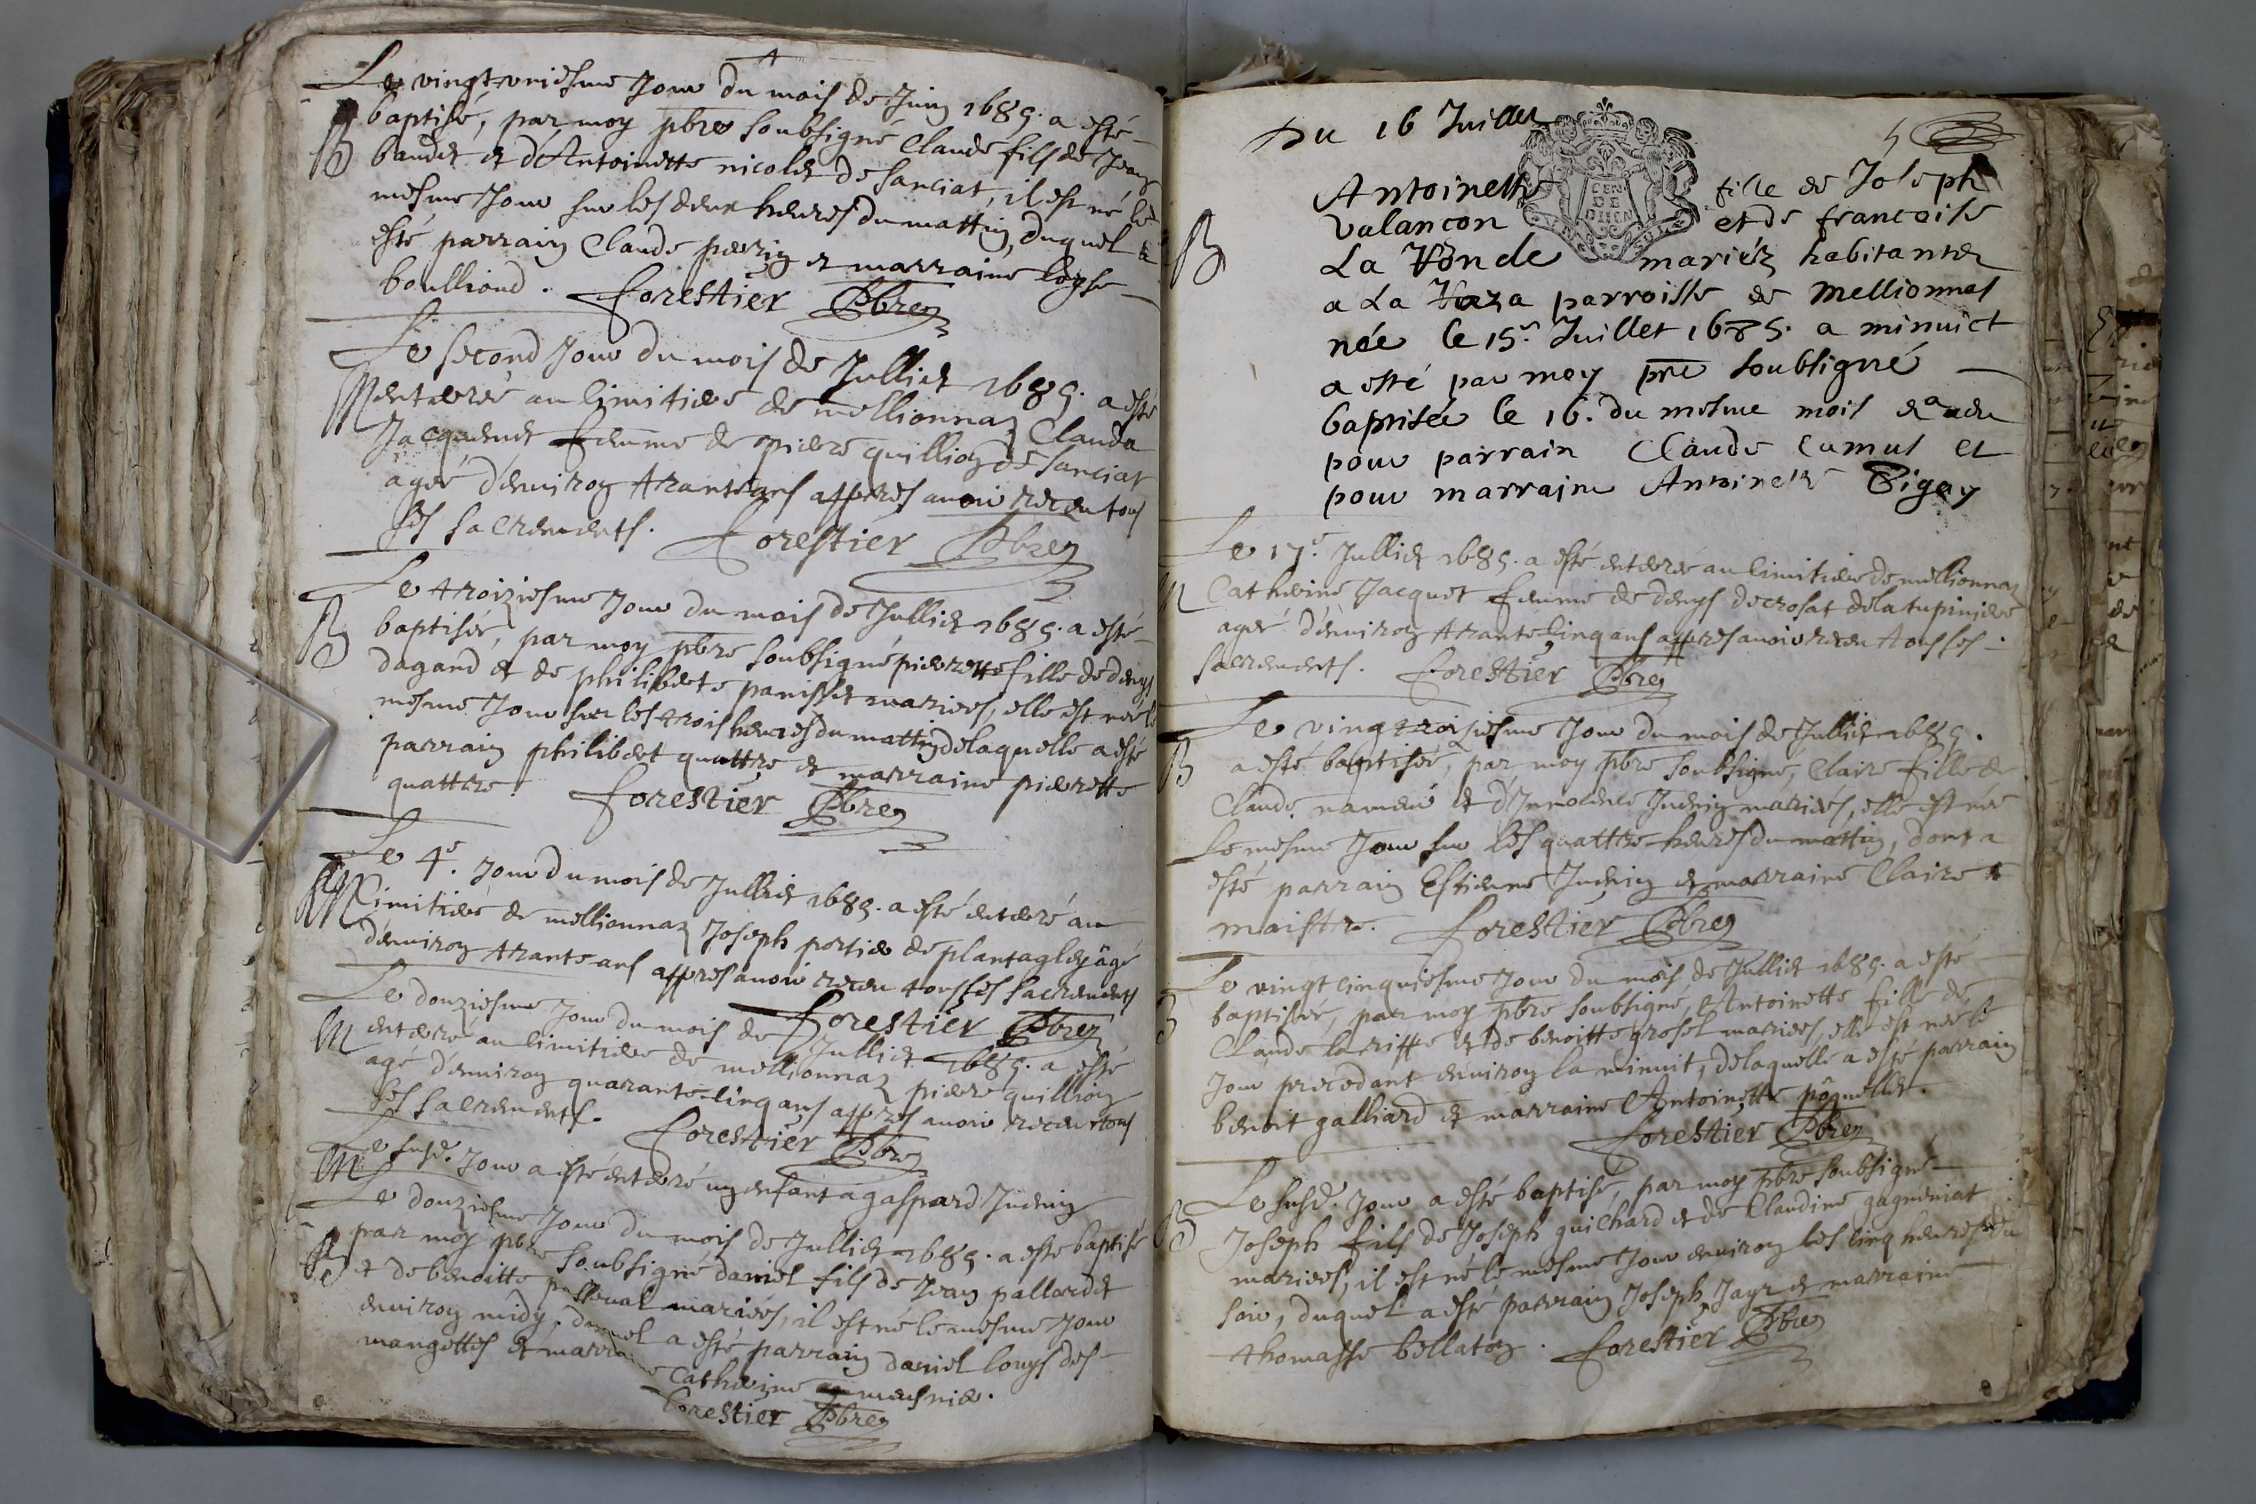 Le vingt-uniesme Jour du mois de Juin 1685. a esté
B baptisé, par moy pbre soubsigné Claude fils de Jean
baudet et d'Antoinette nicolet de sanciat, il est né le
mesme Jour sur les deux heures du mattin, duquel a
esté parrain Claude perrin et marraine loyse
boulliond. Forestier Pbre
Le second Jour du mois de Julliet 1685. a esté
M enterré au Cimitiere de mellionnaz Clauda
Jacquenet femme de piere quillion de sanciat
agée d'environ trante ans appres avoir receu tous
ses sacrements. Forestier Pbre
Le troiziesme Jour du mois de Julliet 1685. a esté
B baptisée, par moy pbre soubsigné pierrette fille de denys
dagand et de philiberte panisset mariees, elle est née le
mesme Jour sur les trois heures du mattin de laquelle a esté
parrain philibert quattre et marraine pierrette
quattre. Forestier Pbre
Le 4e. Jour du mois de Julliet 1685. a esté enterré au
M Cimitiere de mellionnaz Joseph portier de plantaglay âgé
d'environ trante ans appres avoir receu tous ses sacrements
Forestier Pbre
Le douziesme Jour du mois de Julliet 1685. a esté
M enterré au Cimitiere de mellionnaz piere quillion
agé d'environ quarante-cinq ans appres avoir receu tous
ses sacrements. Forestier Pbre
M Le susd. Jour a esté enterré un enfant a gaspard Judrin
Le douziesme Jour du mois de Julliet 1685. a esté baptisé
B par moy pbre soubsigné daniel fils de Jean pallordet
et de benoitte mariées, il est né le mesme Jour
environ midy. duquel a esté parrain daniel louys des
mangettes et marraine Catherine mesnier.
Forestier Pbre
Du 16 Juillet
5
GEN DE DIION
Antoinette fille de Joseph
B Valancon et de francoise
La Ronde mariéz habitantz
a La parroisse de Mellionnas
née le 15. Juillet 1685. a minuict
a esté par moy pre soubsigné
baptisée le 16. du mesme mois & a eu
pour parrain Claude Camus et
pour marraine Antoinette Pigay
Le 17e. Julliet 1685. a esté enterré au Cimitiere de mellionnaz
M Catherine Jacquet femme de denys decrosat de la tupiniere
agée d'environ trante cinq ans appres avoir receu tous ses
sacrements. Forestier Pbre
Le vingt troisiesme Jour du mois de Julliet 1685.
B a esté baptisée, par moy pbre soubsigné, Claire fille de
Claude et d'Innocence Judrin mariées, elle est née
le mesme Jour sur les quattre heures du mattin, dont a
esté parrain Estienne Judrin et marraine Claire le
maistre. Forestier Pbre
Le vingt cinquiesme Jour du mois de Julliet 1685. a esté
B baptisée, par moy pbre soubsigné, Antoinette fille de
Claude lariffe et de benoitte grosel mariees, elle est née le
Jour precedant environ la minuit, de laquelle a esté parrain
benoit galliard et marraine Antoinette poquellet.
Forestier Pbre
Le susd. Jour a esté baptisé, par moy pbre soubsigné
B Joseph fils de Joseph guichard et de Claudine gagneniat
mariees, il est né le mesme Jour environ les cinq heures du
soir, duquel a esté parrain Joseph Jayr et marraine
thomasse bellaton. Forestier Pbre